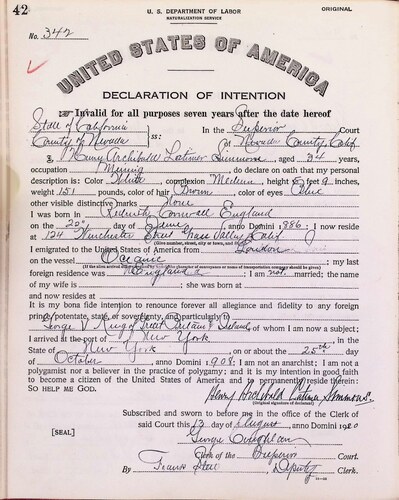 42
U. S. DEPARTMENT OF LABOR
NATURALIZATION SERVICE
ORIGINAL
No. 342
UNITED STATES OF AMERICA
DECLARATION OF INTENTION
Invalid for all purposes seven years after the date hereof
State of California
County of Nevada
ss:
In the Superior Court
of Nevada County, Calif.
I, Henry Archibald Latimer Simmons, aged 34 years,
occupation Mining, do declare on oath that my personal
description is: Color White, complexion Medium, height 5 feet 9 inches,
weight 151 pounds, color of hair Brown, color of eyes Blue
other visible distinctive marks None
I was born in Redruth Cornwall England
on the 20th day of June, anno Domini 1886; I now reside
at 124 Winchester Street Grass Valley, Calif
(Give number, street, city or town, and State.)
I emigrated to the United States of America from London
on the vessel Oceanic; my last
(If the alien arrived otherwise than by vessel, the character of conveyance or name of transportation company should be given.)
foreign residence was England; I am not married; the name
of my wife is; she was born at
and now resides at
It is my bona fide intention to renounce forever all allegiance and fidelity to any foreign
prince, potentate, state, or sovereignty, and particularly to
George V King of Great Britain & Ireland, of whom I am now a subject;
I arrived at the port of New York, in the
State of New York, on or about the 25th day
of October, anno Domini 1908; I am not an anarchist; I am not a
polygamist nor a believer in the practice of polygamy; and it is my intention in good faith
to become a citizen of the United States of America and to permanently reside therein:
SO HELP ME GOD.
Henry Archibald Latimer Simmons
(Original signature of declarant.)
Subscribed and sworn to before me in the office of the Clerk of
said Court this 13 day of August, anno Domini 1920
[SEAL]
George Coughlan
Clerk of the Superior Court.
By Deputy Clerk.